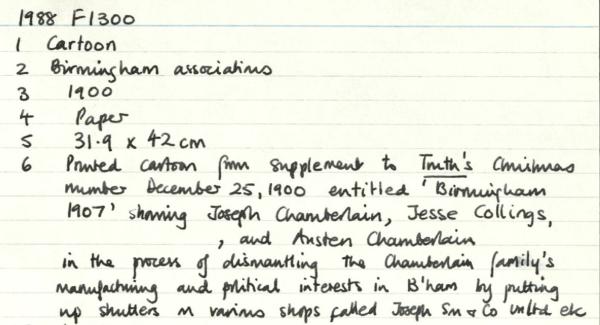 1988 F1300
1 Cartoon
2 Birmingham associations
3 1900
4 Paper
5 31.9 x 42 cm
6 Printed cartoon from supplement to Truth's Christmas
number December 25, 1900 entitled 'Birmingham
1907' showing Joseph Chamberlain, Jesse Collings,
, and Austen Chamberlain
in the process of dismantling the Chamberlain family's
manufacturing and political interests in B'ham by putting
up shutters on various shops called Joseph Sm & Co unltd etc